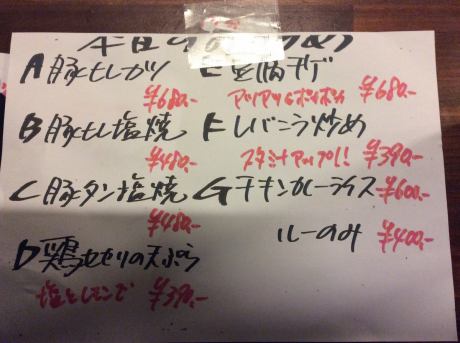 本日のおすすめ
A 豚ヒレカツ
¥680-
B 豚ヒレ塩焼
¥480-
C 豚タン塩焼
¥480-
D 鶏セセリの天ぷら
塩とレモンで ¥390-
E 豆腐チゲ
¥680-
F レバニラ炒め
スタミナアップ!! ¥390-
G チキンカレーライス ¥600-
ルーのみ ¥400-